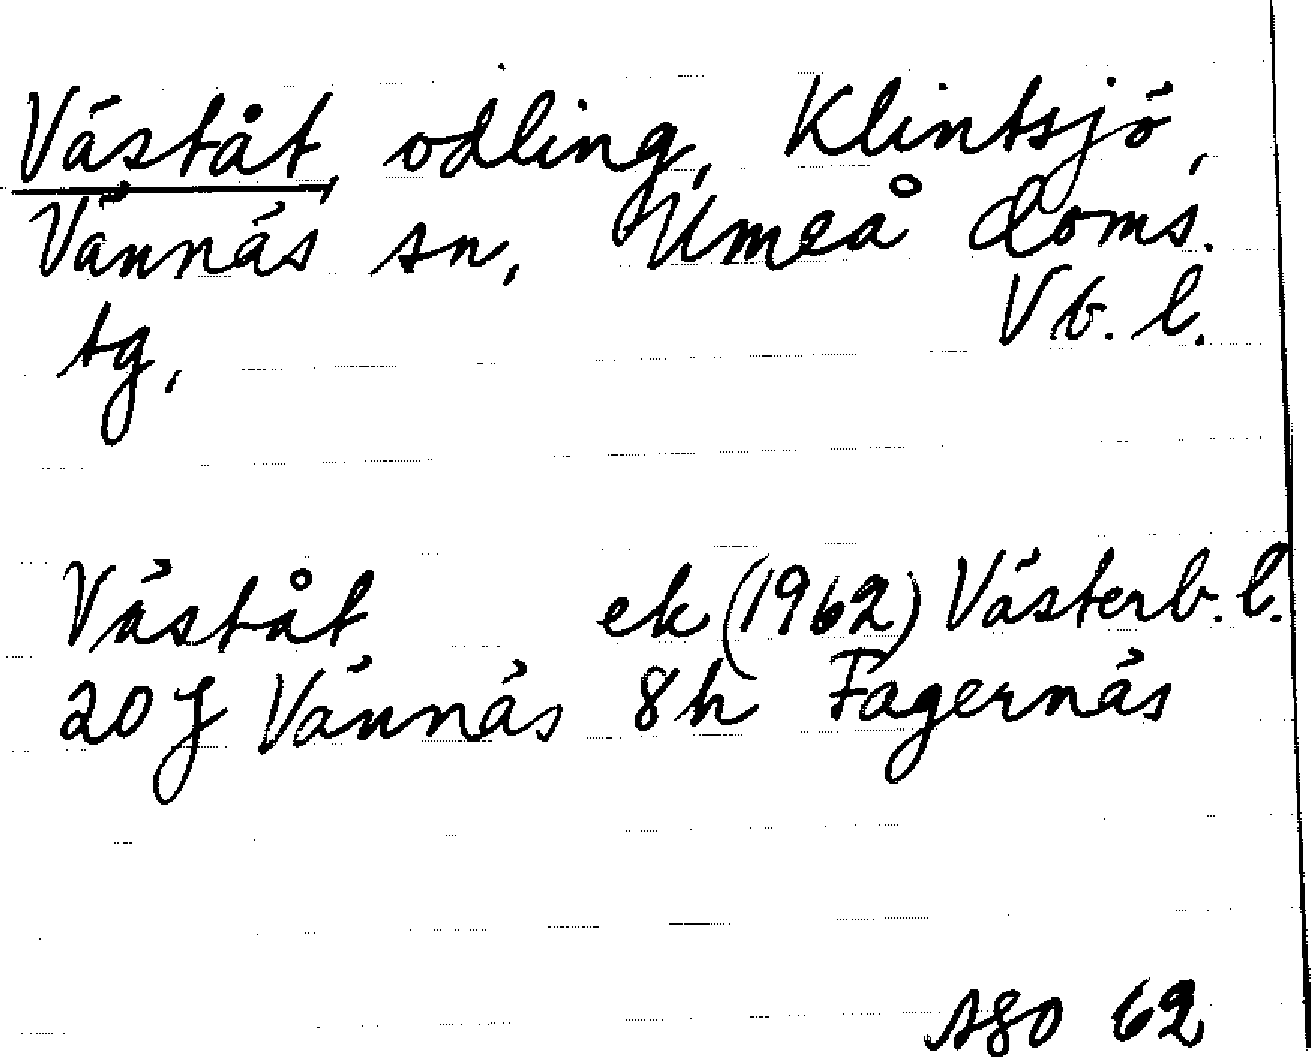 Väståt, odling, Klintsjö,
Vännäs sn, Umeå doms.
tg, Vb. l.
Väståt ek (1962) Västerb. l.
20 J Vännäs 8h Fagernäs
SGO 62